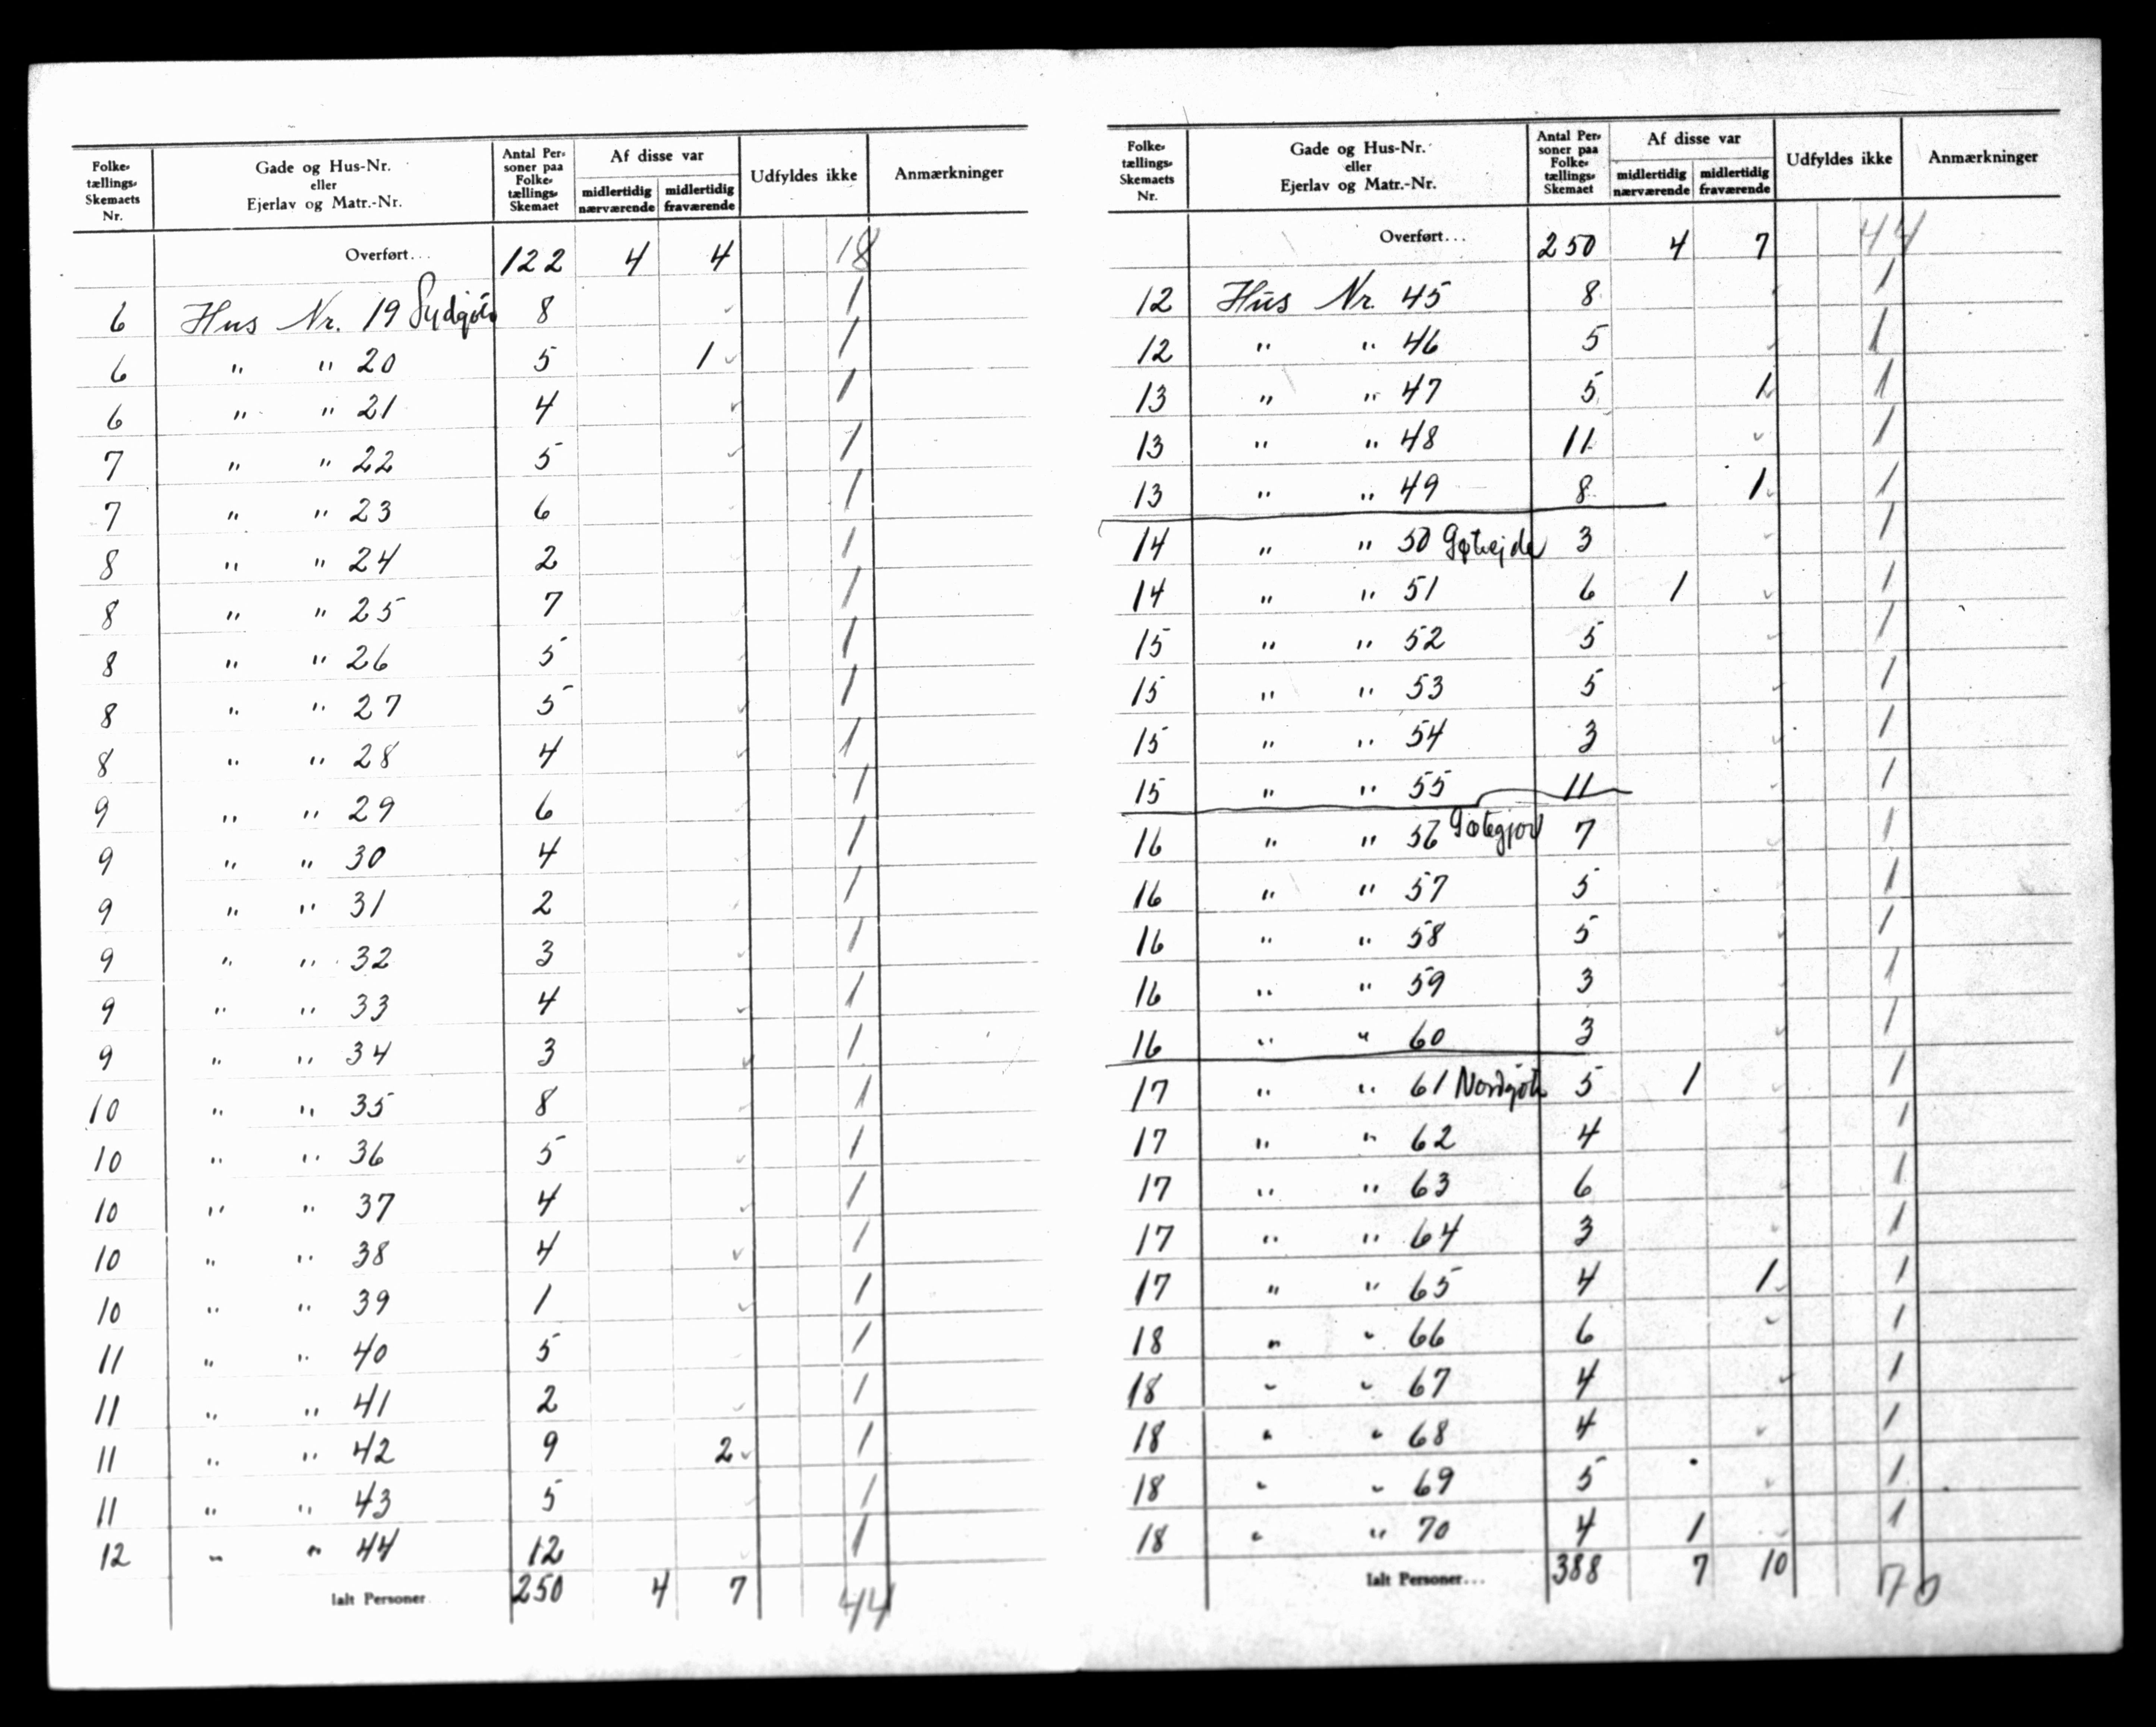 Folke-tællings-Skemaets Nr. | Gade og Hus-Nr. eller Ejerlav og Matr.-Nr. | Antal Personer paa Folketællings-Skemaet | Af disse var midlertidig nærværende | midlertidig fraværende | Udfyldes ikke | Anmærkninger
Overført... 122 4 4 18
6 Hus Nr. 19 Sydgøta 8 1
6 " " 20 5 1 1
6 " " 21 4 1
7 " " 22 5 1
7 " " 23 6 1
8 " " 24 2 1
8 " " 25 7 1
8 " " 26 5 1
8 " " 27 5 1
8 " " 28 4 1
9 " " 29 6 1
9 " " 30 4 1
9 " " 31 2 1
9 " " 32 3 1
9 " " 33 4 1
9 " " 34 3 1
10 " " 35 8 1
10 " " 36 5 1
10 " " 37 4 1
10 " " 38 4 1
10 " " 39 1 1
11 " " 40 5 1
11 " " 41 2 1
11 " " 42 9 2 1
11 " " 43 5 1
12 " " 44 12 1
Ialt Personer 250 4 7 44
Folke-tællings-Skemaets Nr. | Gade og Hus-Nr. eller Ejerlav og Matr.-Nr. | Antal Personer paa Folketællings-Skemaet | Af disse var midlertidig nærværende | midlertidig fraværende | Udfyldes ikke | Anmærkninger
Overført... 250 4 7 44
12 Hus Nr. 45 8 1
12 " " 46 5 1
13 " " 47 5 1 1
13 " " 48 11 1
13 " " 49 8 1 1
14 " " 50 Gøtuejde 3 1
14 " " 51 6 1 1
15 " " 52 5 1
15 " " 53 5 1
15 " " 54 3 1
15 " " 55 11 1
16 " " 56 Gøtegjov 7 1
16 " " 57 5 1
16 " " 58 5 1
16 " " 59 3 1
16 " " 60 3 1
17 " " 61 Nordgøta 5 1 1
17 " " 62 4 1
17 " " 63 6 1
17 " " 64 3 1
17 " " 65 4 1 1
18 " " 66 6 1
18 " " 67 4 1
18 " " 68 4 1
18 " " 69 5 1
18 " " 70 4 1 1
Ialt Personer... 388 7 10 70